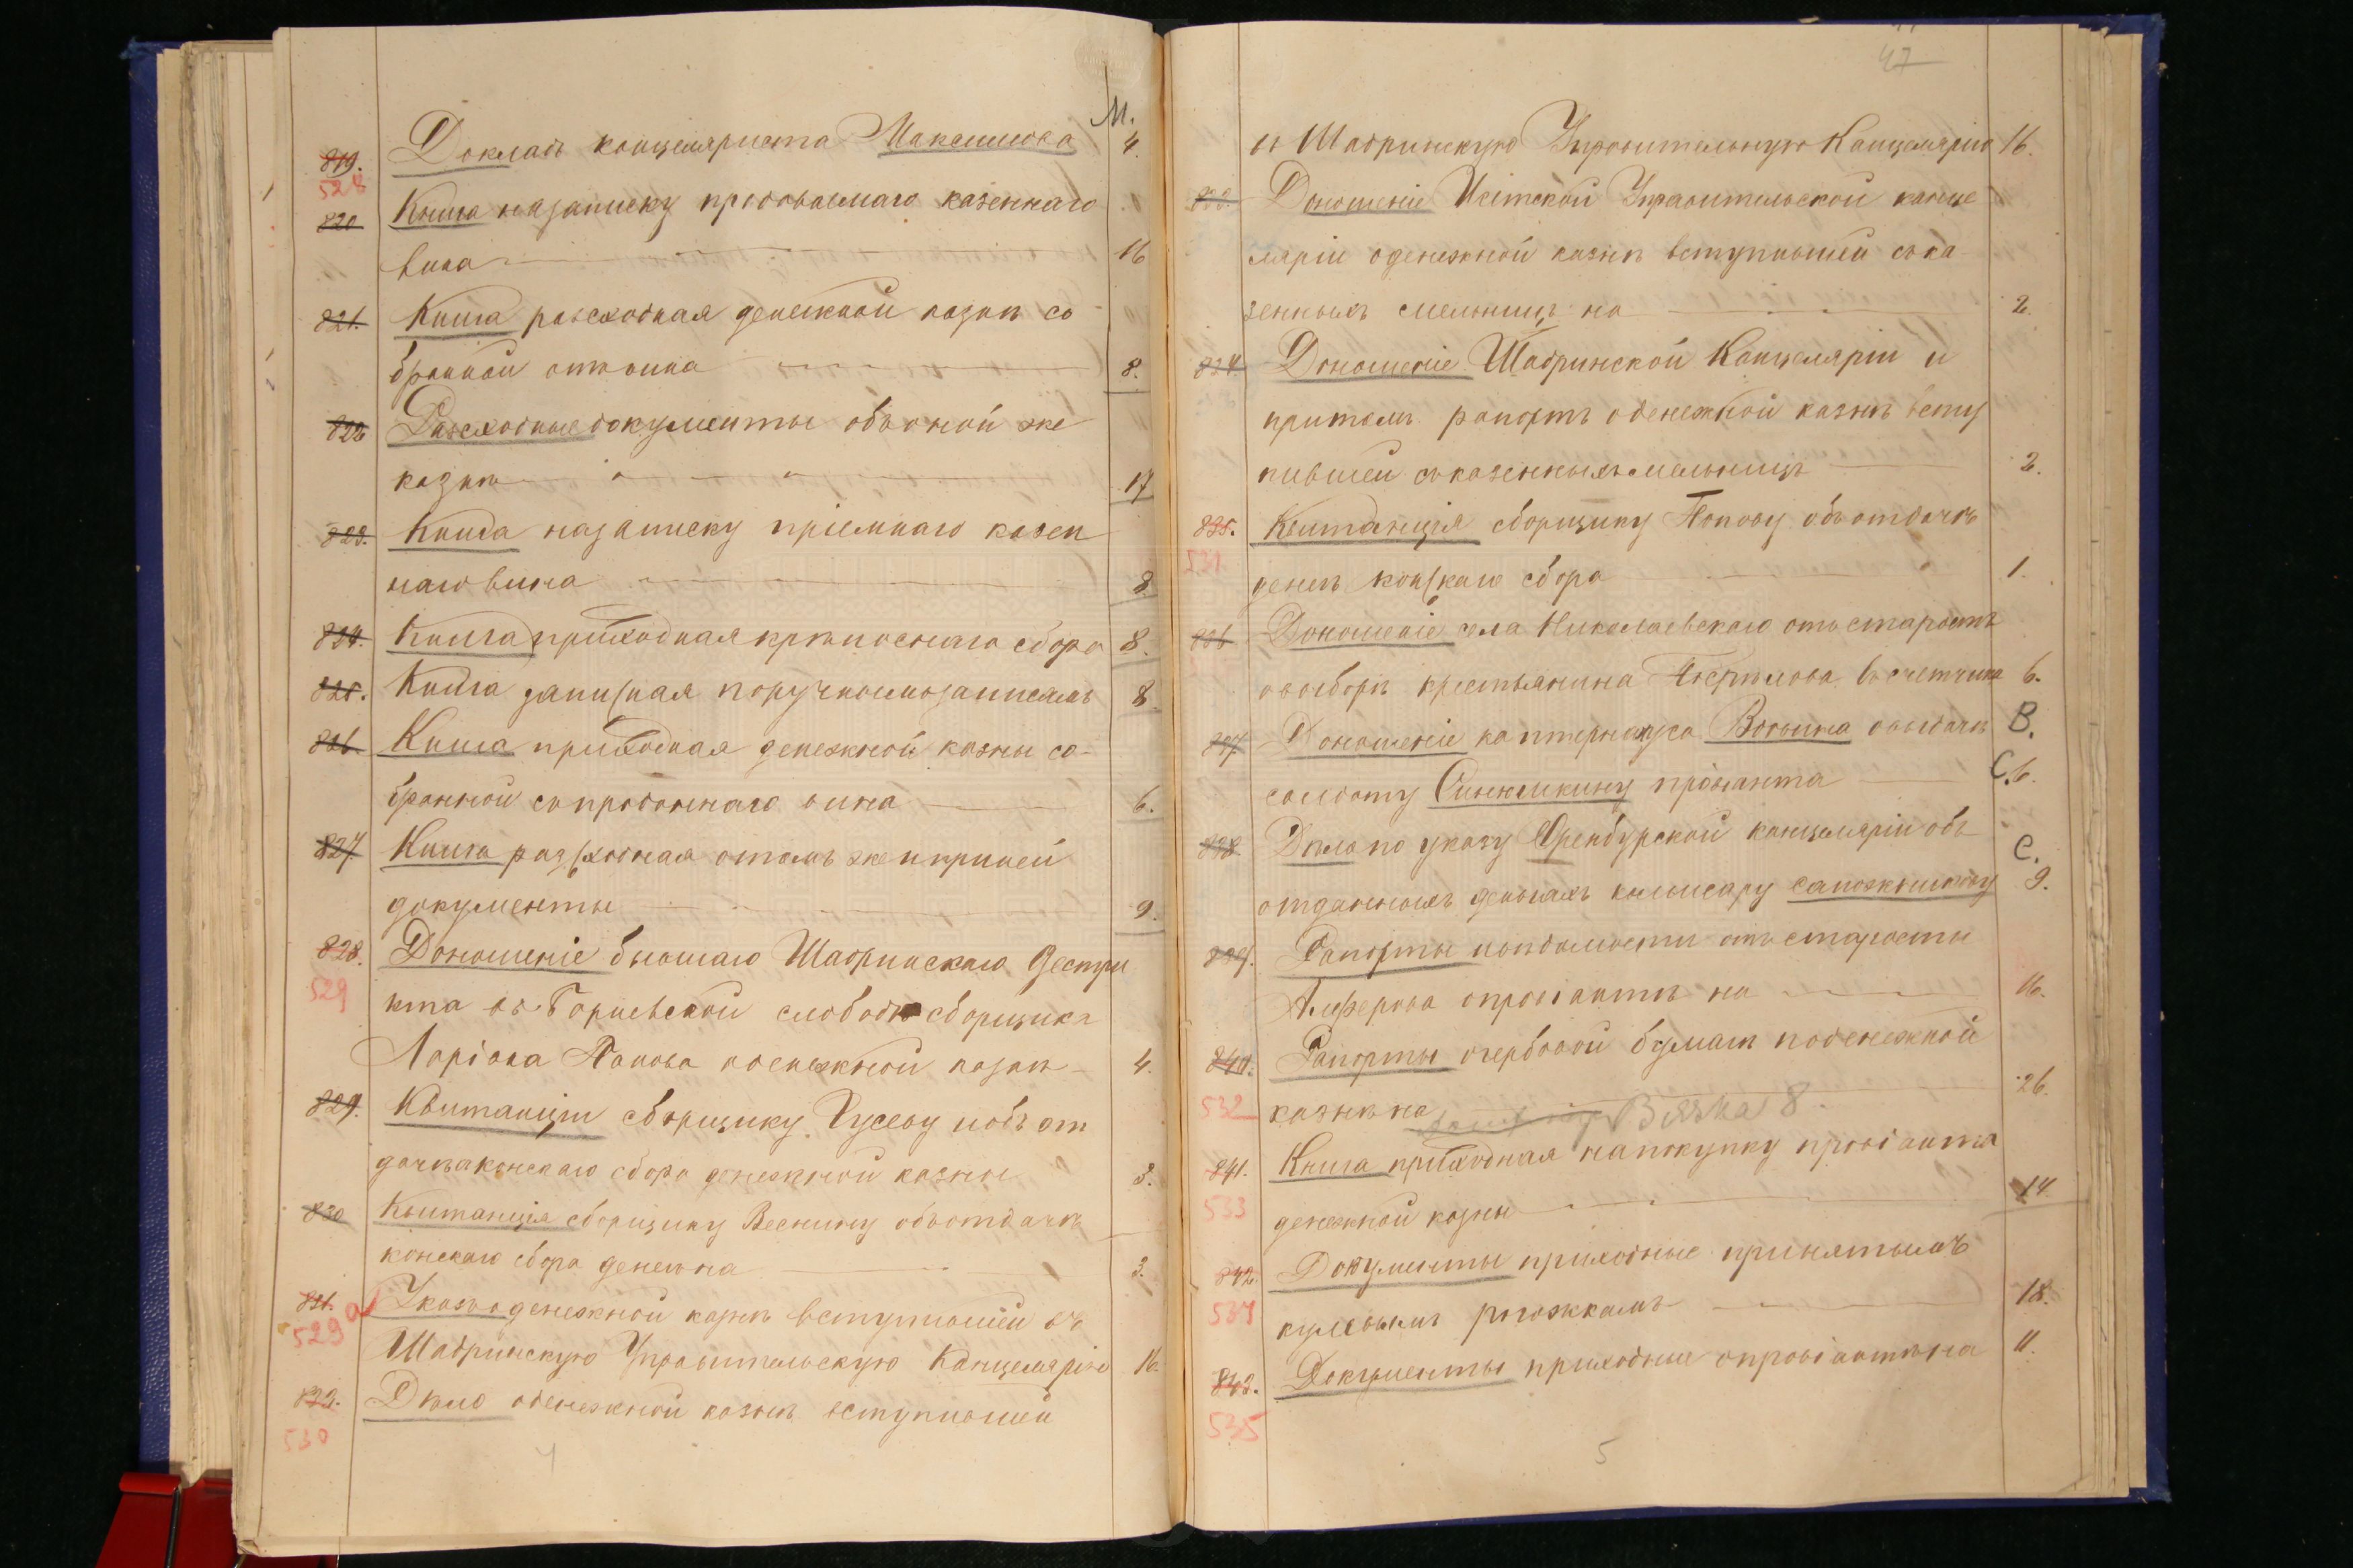 М.
819. Докладъ канцеляриста Максимова 4.
528
820 Книга назаписку продоваемаго казеннаго
вина 16
821. Книга расходная денежной казнѣ со
бранной отъ вина 8.
822 Расходные документы объ оной же
казнѣ 17
823. Книга назаписку пріемнаго казен
наго вина 8
824. Книга приходная крѣпоснаго сбора 8.
825. Книга записная поручнымъ записямъ 8
826 Книга приходная денежной казны со-
бранной съ продажнаго вина 6.
827 Книга разсходная о томъ же и при ней
документы 9.
828. Доношеніе бывшаго Шадринскаго Дестри
529
кта въ слободѣ сборщика
Ларіона Попова о денежной казнѣ 4.
829. Квитанціи сборщику Гусеву и объ от
дачѣ конскаго сбора денежной казны 3.
830 Квитанція сборщику Веснину объ отдачѣ
конскаго сбора денегъ на 3.
831. Указъ о денежной казнѣ вступившей въ
529 а
Шадринскую Управительскую Канцелярію 16.
832. Дѣло о денежной казнѣ вступившей
530
4
47
въ Шадринскую Управительную Канцелярію 16.
833. Доношеніе Исетской Управительской канце
ляріи о денежной казнѣ вступившей съ ка
зенныхъ мельницъ на 2.
834 Доношеніе Шадринской Канцеляріи и
при томъ рапортъ о денежной казнѣ всту
пившей съ казенныхъ мельницъ 2.
835. Квитанція сборщику Попову объ отдачѣ
531
денегъ конскаго сбора 1.
836 Доношеніе села Николаевскаго отъ старостъ
о выборѣ крестьянина въ счетчики 6.
837 Доношеніе каптернауса Вотина о выдачѣ В.
солдату Синюшкину провіанта С. 6.
838 Дѣло по указу Оренбурской канцеляріи объ С.
отданныхъ деньгахъ комисару Сапожникову 9.
839. Рапорты и вѣдомости отъ старосты
Алферова о провіантѣ на 16.
840. Рапорты о гербовой бумагѣ по денежной
532
казнѣ на Вязка 8. 26.
841. Книга приходная на покупку провіанта
533
денежной казны 14
842. Документы приходные принятымъ
534
кулевымъ рогожкамъ 18.
843. Документы приходные о провіантѣ на 11.
535
5